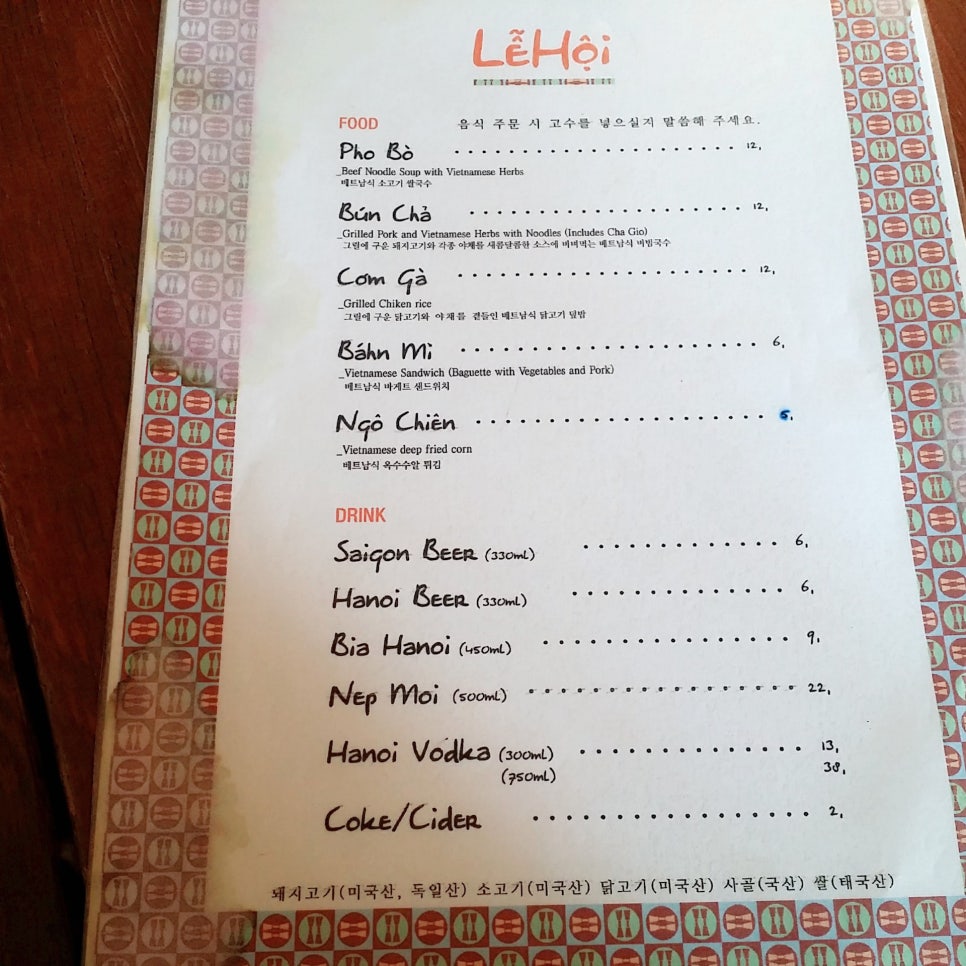 LễHội
FOOD 음식 주문 시 고수를 넣으실지 말씀해 주세요.
Pho Bò 12,
_Beef Noodle Soup with Vietnamese Herbs
베트남식 소고기 쌀국수
Bún Chả 12,
_Grilled Pork and Vietnamese Herbs with Noodles (Includes Cha Gio)
그릴에 구운 돼지고기와 각종 야채를 새콤달콤한 소스에 비벼먹는 베트남식 비빔국수
Cơm Gà 12,
_Grilled Chiken rice
그릴에 구운 닭고기와 야채를 곁들인 베트남식 닭고기 덮밥
Báhn Mì 6,
_Vietnamese Sandwich (Baguette with Vegetables and Pork)
베트남식 바게트 샌드위치
Ngô Chiên 5,
_Vietnamese deep fried corn
베트남식 옥수수알 튀김
DRINK
Saigon BEER (330ml) 6,
Hanoi BEER (330ml) 6,
Bia Hanoi (450ml) 9,
Nep Moi (500ml) 22,
Hanoi Vodka (300ml) 13,
(750ml) 38,
Coke/Cider 2,
돼지고기(미국산, 독일산) 소고기(미국산) 닭고기(미국산) 사골(국산) 쌀(태국산)